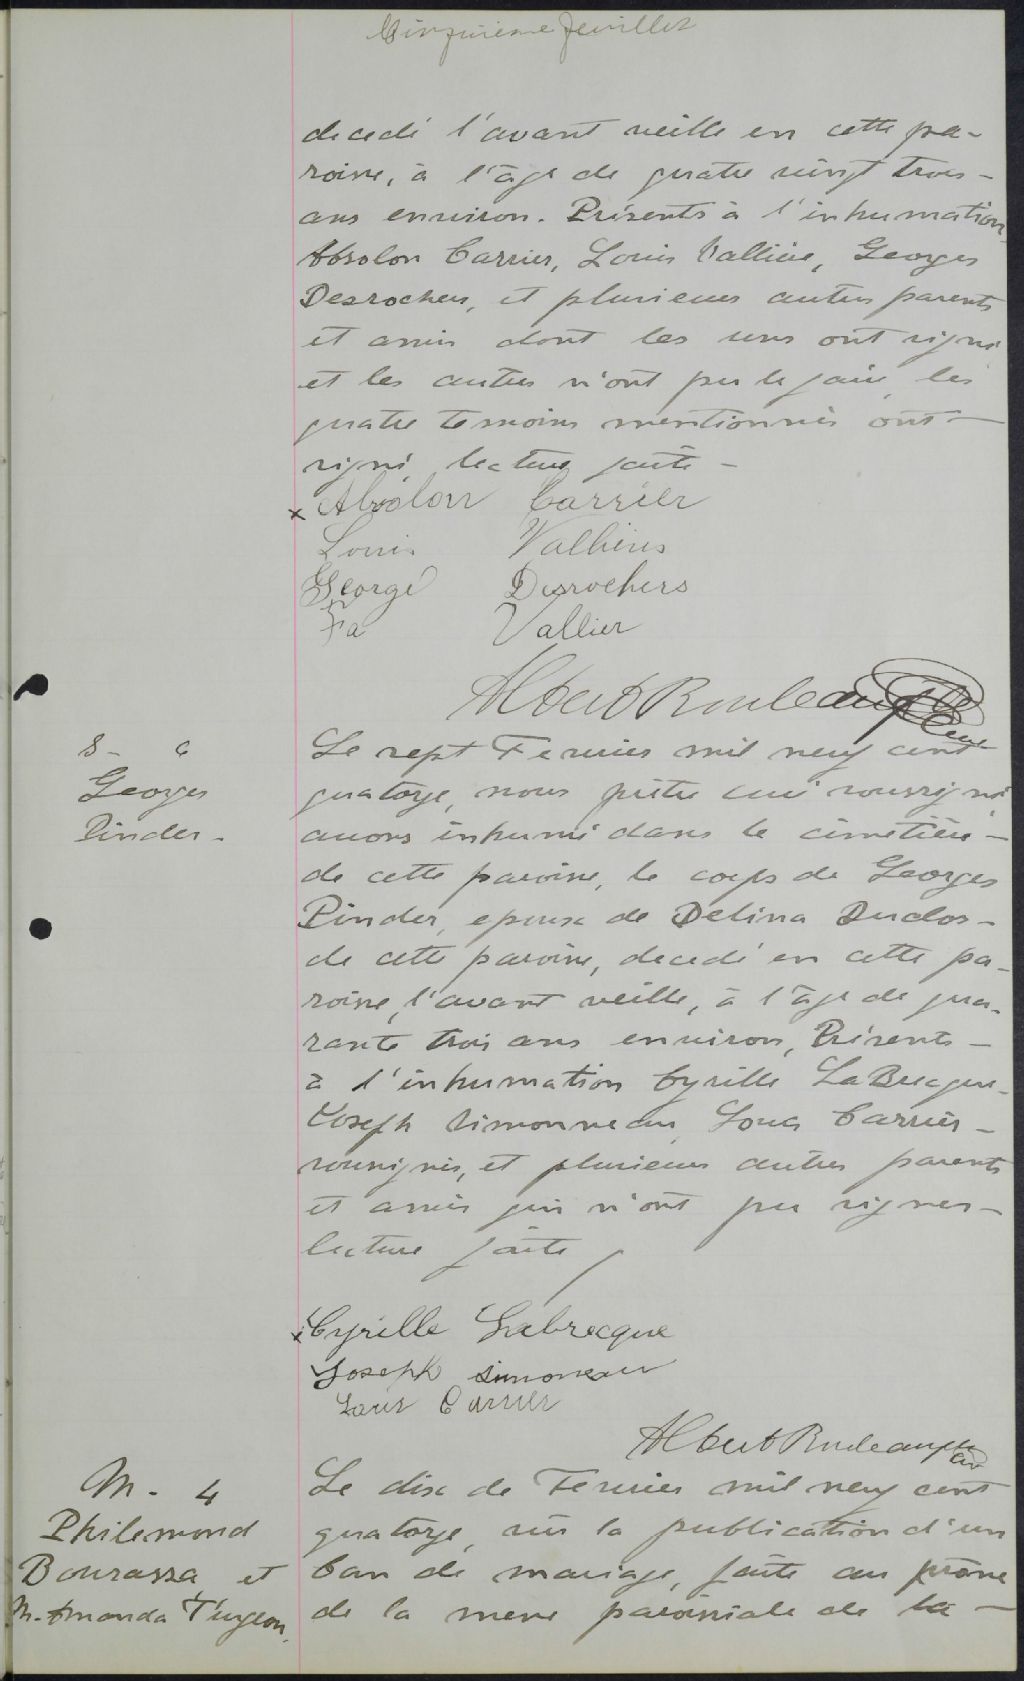 Cinquième feuillet
decedé l'avant veille en cette pa-
roisse, à l'âge de quatre vingt trois-
ans environ. Présents à l'inhumation
Absolon Carrier, Louis Vallière, Georges
Desrochers, et plusieurs autres parents
et amis dont les uns ont signé
et les autres n'ont pu le faire, les
quatre temoins mentionnés ont-
signé, lecture faite -
x Absolon Carrier
Louis Vallières
George Desrochers
Fa Vallier
Albert Rouleau ptre
Curé
S- 6
Georges
Pinder -
Le sept Fevrier mil neuf cent
quatorze, nous prêtre curé soussigné
avons inhumé dans le cimetière -
de cette paroisse, le corps de Georges
Pinder, epoux de Delina Duclos -
de cette paroisse, decedé en cette pa-
roisse, l'avant veille, à l'âge de qua-
rante trois ans environ, Présents -
à l'inhumation Cyrille LaBrecque
Joseph Simonneau, Louis Carrier -
soussignés, et plusieurs autres parents
et amis qui n'ont pu signer -
lecture faite
x Cyrille Labrecque
Joseph Simoneau
Louis Carrier
Albert Rouleau ptre
Curé
M - 4
Philemond
Bourassa et
M. Amanda Turgeon.
Le dix de Fevrier mil neuf cent
quatorze, vu la publication d'un
ban de mariage, faite au prône
de la messe paroissiale de la -